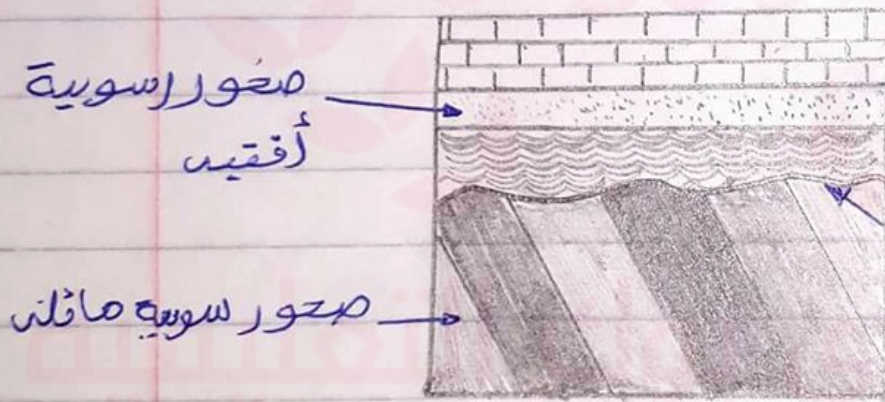 صخور رسوبية
أفقيه
صحور سوبيه مائله